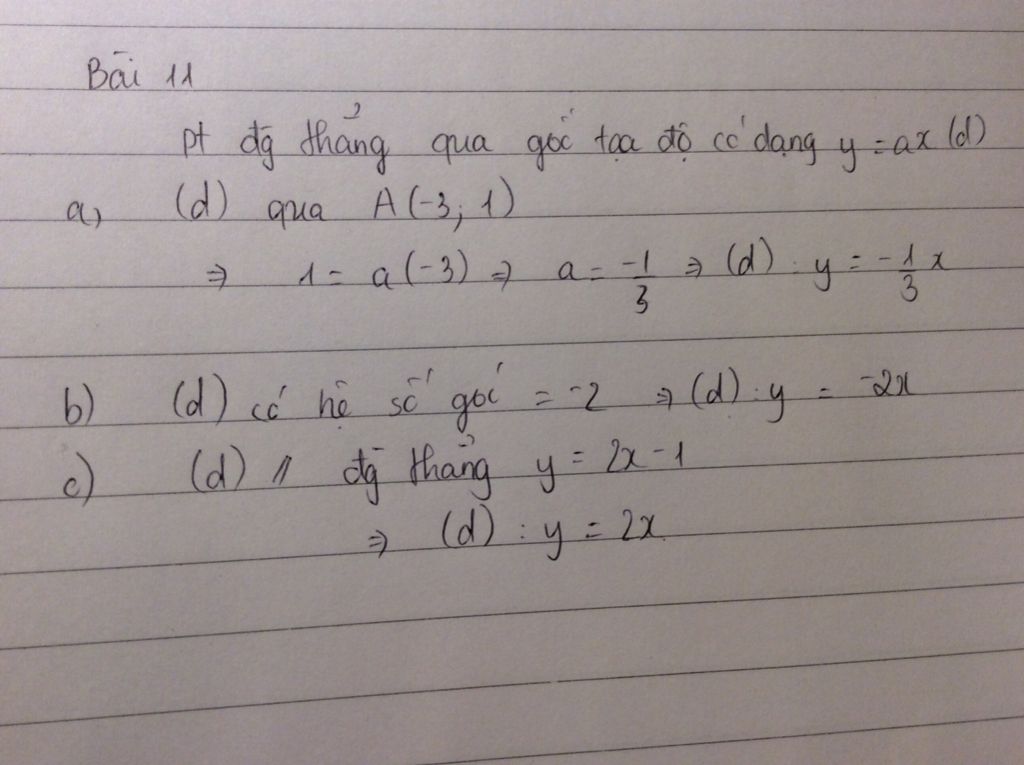 Bài 11
pt đg thẳng qua gốc tọa độ có dạng y = ax (d)
a, (d) qua A(-3; 1)
⇒ 1 = a(-3) ⇒ a = -1/3 ⇒ (d) : y = -1/3 x
b) (d) có hệ số góc = -2 ⇒ (d) : y = -2x
c) (d) // đg thẳng y = 2x - 1
⇒ (d) : y = 2x